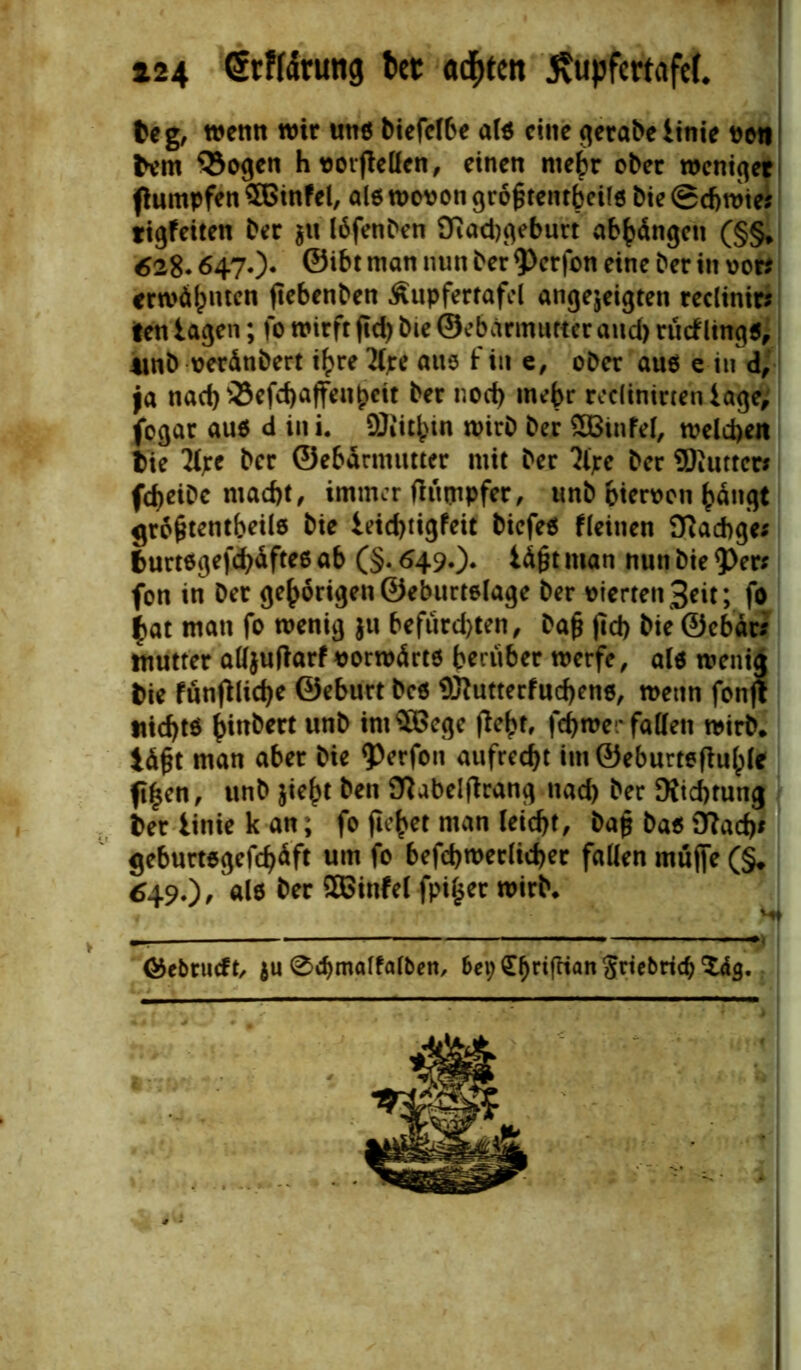 224 Erklärung der achten Kupfertafel.
deg, wenn wir uns dieselbe als eine gerade Linie von
dem Bogen h vorstellen, einen mehr oder weniger
stumpfen Winkel, als wovon größtentheils die Schwie-
rigkeiten der zu lösenden Nachgeburt abhängen (§§.
628. 647.). Gibt man nun der Person eine der in vor-
erwähnten siebenden Kupfertafel angezeigten reclinir-
ten Lagen; so wirft sich die Gebärmutter auch rücklings,
und verändert ihre Axe aus f in e, oder aus e in d,
ja nach Beschaffenheit der noch mehr reclinirten Lage,
sogar aus d in i. Mithin wird der Winkel, welchen
die Axe der Gebärmutter mit der Axe der Mutter-
scheide macht, immer stümpfer, und hiervon hängt
größtentheils die Leichtigkeit dieses kleinen Nachge-
burtsgeschäftes ab (§. 649.). Läßt man nun die Per-
son in der gehörigen Geburtslage der vierten Zeit; so
hat man so wenig zu befürchten, daß sich die Gebär-
mutter allzustark vorwärts herüber werfe, als wenig
die künstliche Geburt des Mutterkuchens, wenn sonst
nichts hindert und im Wege steht, schwer fallen wird.
Läßt man aber die Person aufrecht im Geburtsstuhle
sitzen, und zieht den Nabelstrang nach der Richtung
der Linie k an; so siehet man leicht, daß das Nach-
geburtsgeschäft um so beschwerlicher fallen müsse (§.
649.), als der Winkel spitzer wird.
Gedruckt, zu Schmalkalden, bey Christian Friedrich Täg.